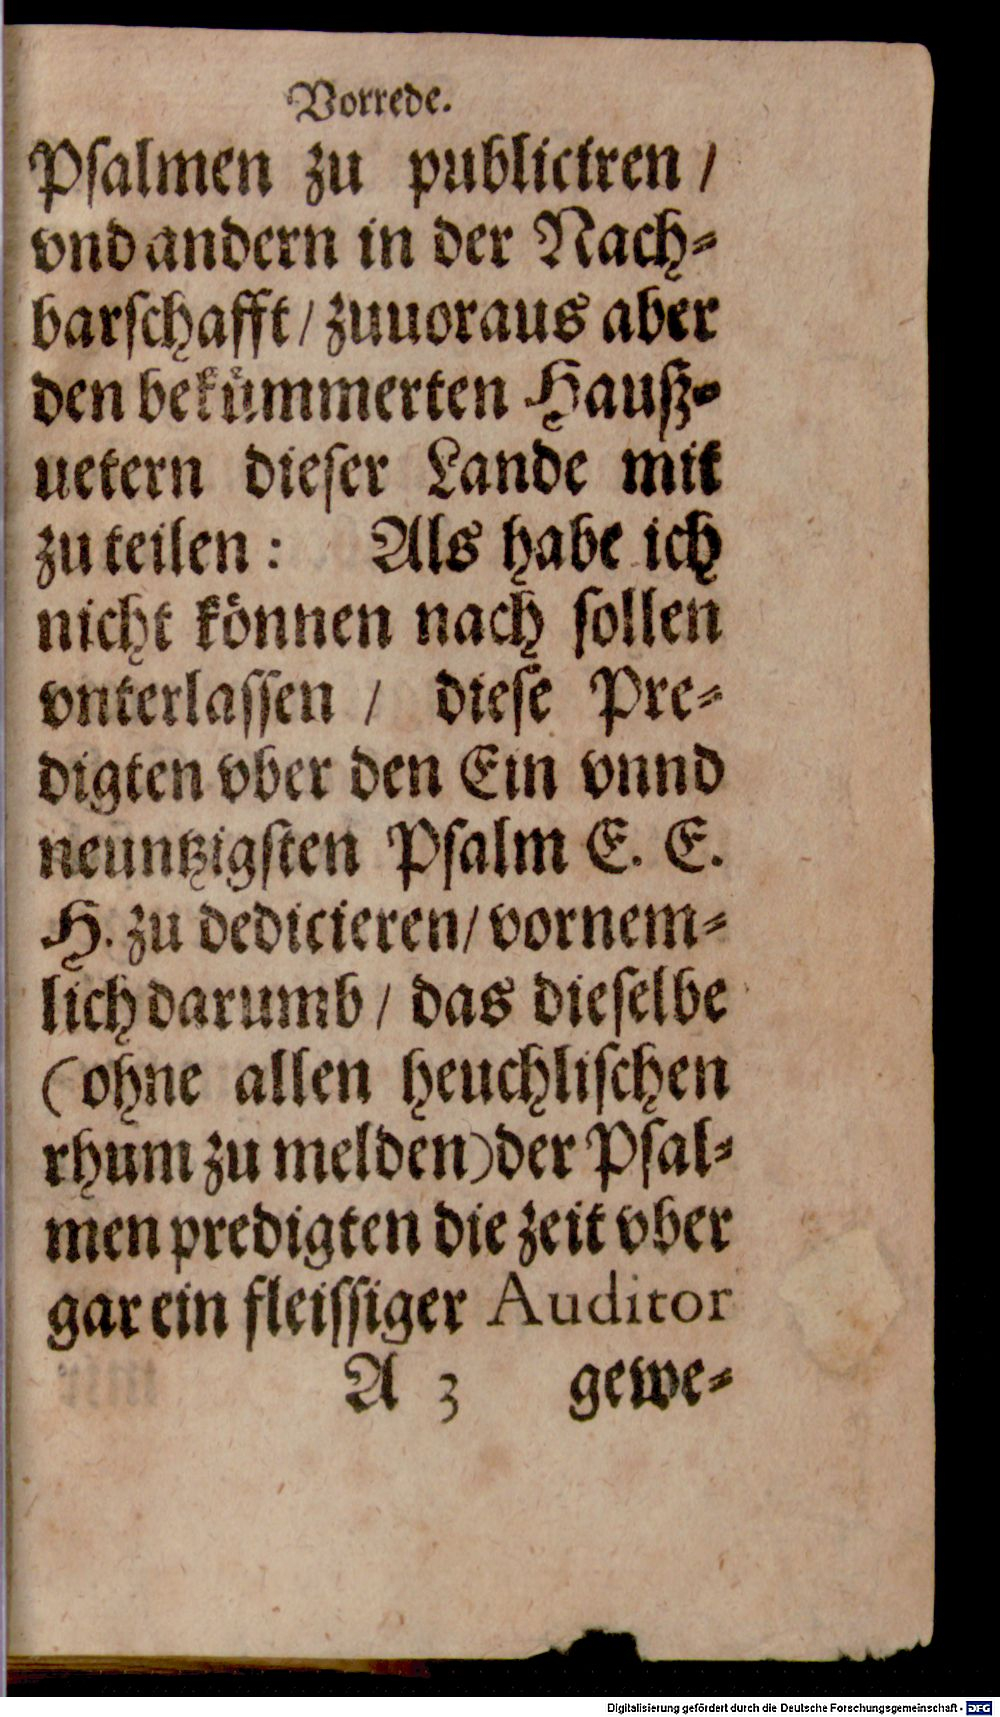 Vorrede.
Psalmen zu publiciren /
vnd andern in der Nach-
barschafft / zuuoraus aber
den bekümmerten Hauß-
uetern dieser Lande mit
zu teilen : Als habe ich
nicht können nach sollen
vnterlassen / diese Pre-
digten vber den Ein vnnd
neuntzigsten Psalm E. E.
H. zu dedicieren / vornem-
lich darumb / das dieselbe
(ohne allen heuchlischen
rhum zu melden) der Psal-
men predigten die zeit vber
gar ein fleissiger Auditor
A 3 gewe-
Digitalisierung gefördert durch die Deutsche Forschungsgemeinschaft - DFG